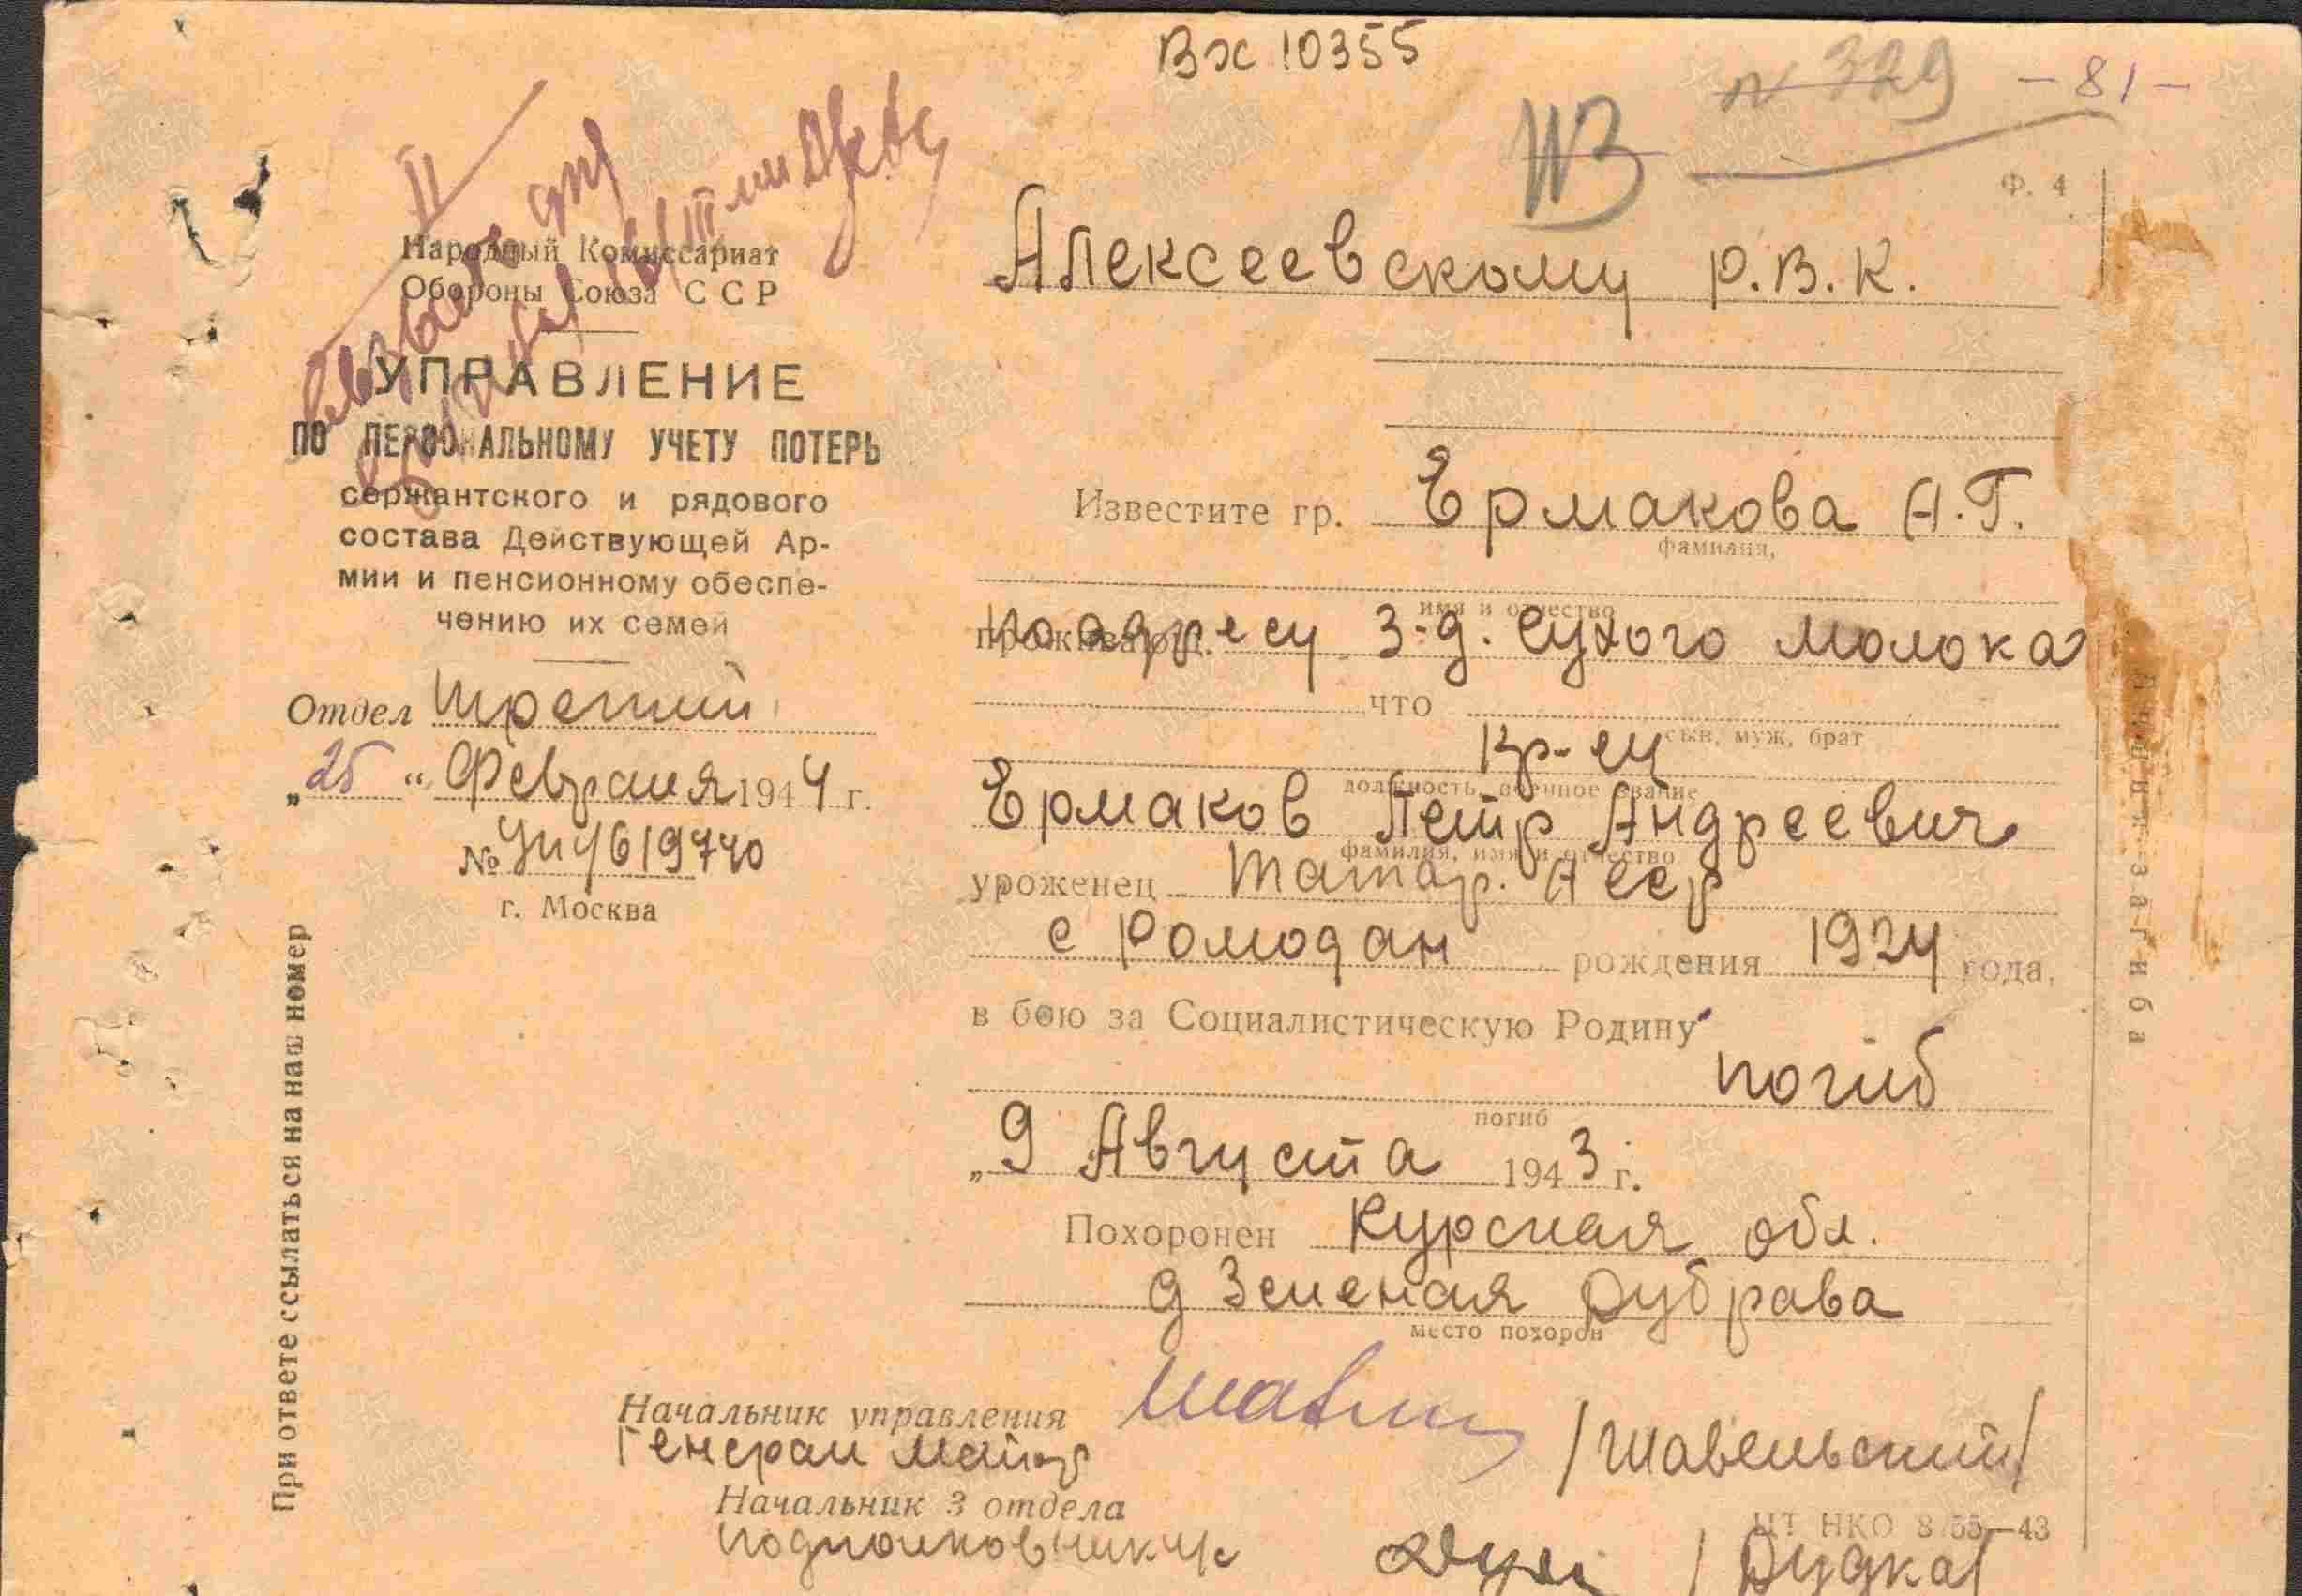 Вх 10355
N 329 -81-
Ф. 4
II
Народный Комиссариат
Обороны Союза ССР
УПРАВЛЕНИЕ
ПО ПЕРСОНАЛЬНОМУ УЧЕТУ ПОТЕРЬ
сержантского и рядового
состава Действующей Ар-
мии и пенсионному обеспе-
чению их семей
Отдел третий
„25“ Февраля 1944 г.
№ 619740
г. Москва
При ответе ссылаться на наш номер
Алексеевскому Р.В.К.
Известите гр. Ермакова А.Г.
фамилия,
имя и отчество
прожива по адресу з-д. Сухого молока
что
сын, муж, брат
кр-ец
должность, военное звание
Ермаков Петр Андреевич
фамилия, имя и отчество
уроженец Татар. АССР
с Ромодан рождения 1924 года,
в бою за Социалистическую Родину
погиб
погиб
„9 Августа 1943 г.
Похоронен Курская обл.
д Зеленая Дубрава
место похорон
Начальник управления
Генерал майор /Шавельский/
Начальник 3 отдела
подполковник /Дудка/
ЦТ НКО 8 55—43
Линия загиба
ПАМЯТЬ НАРОДА